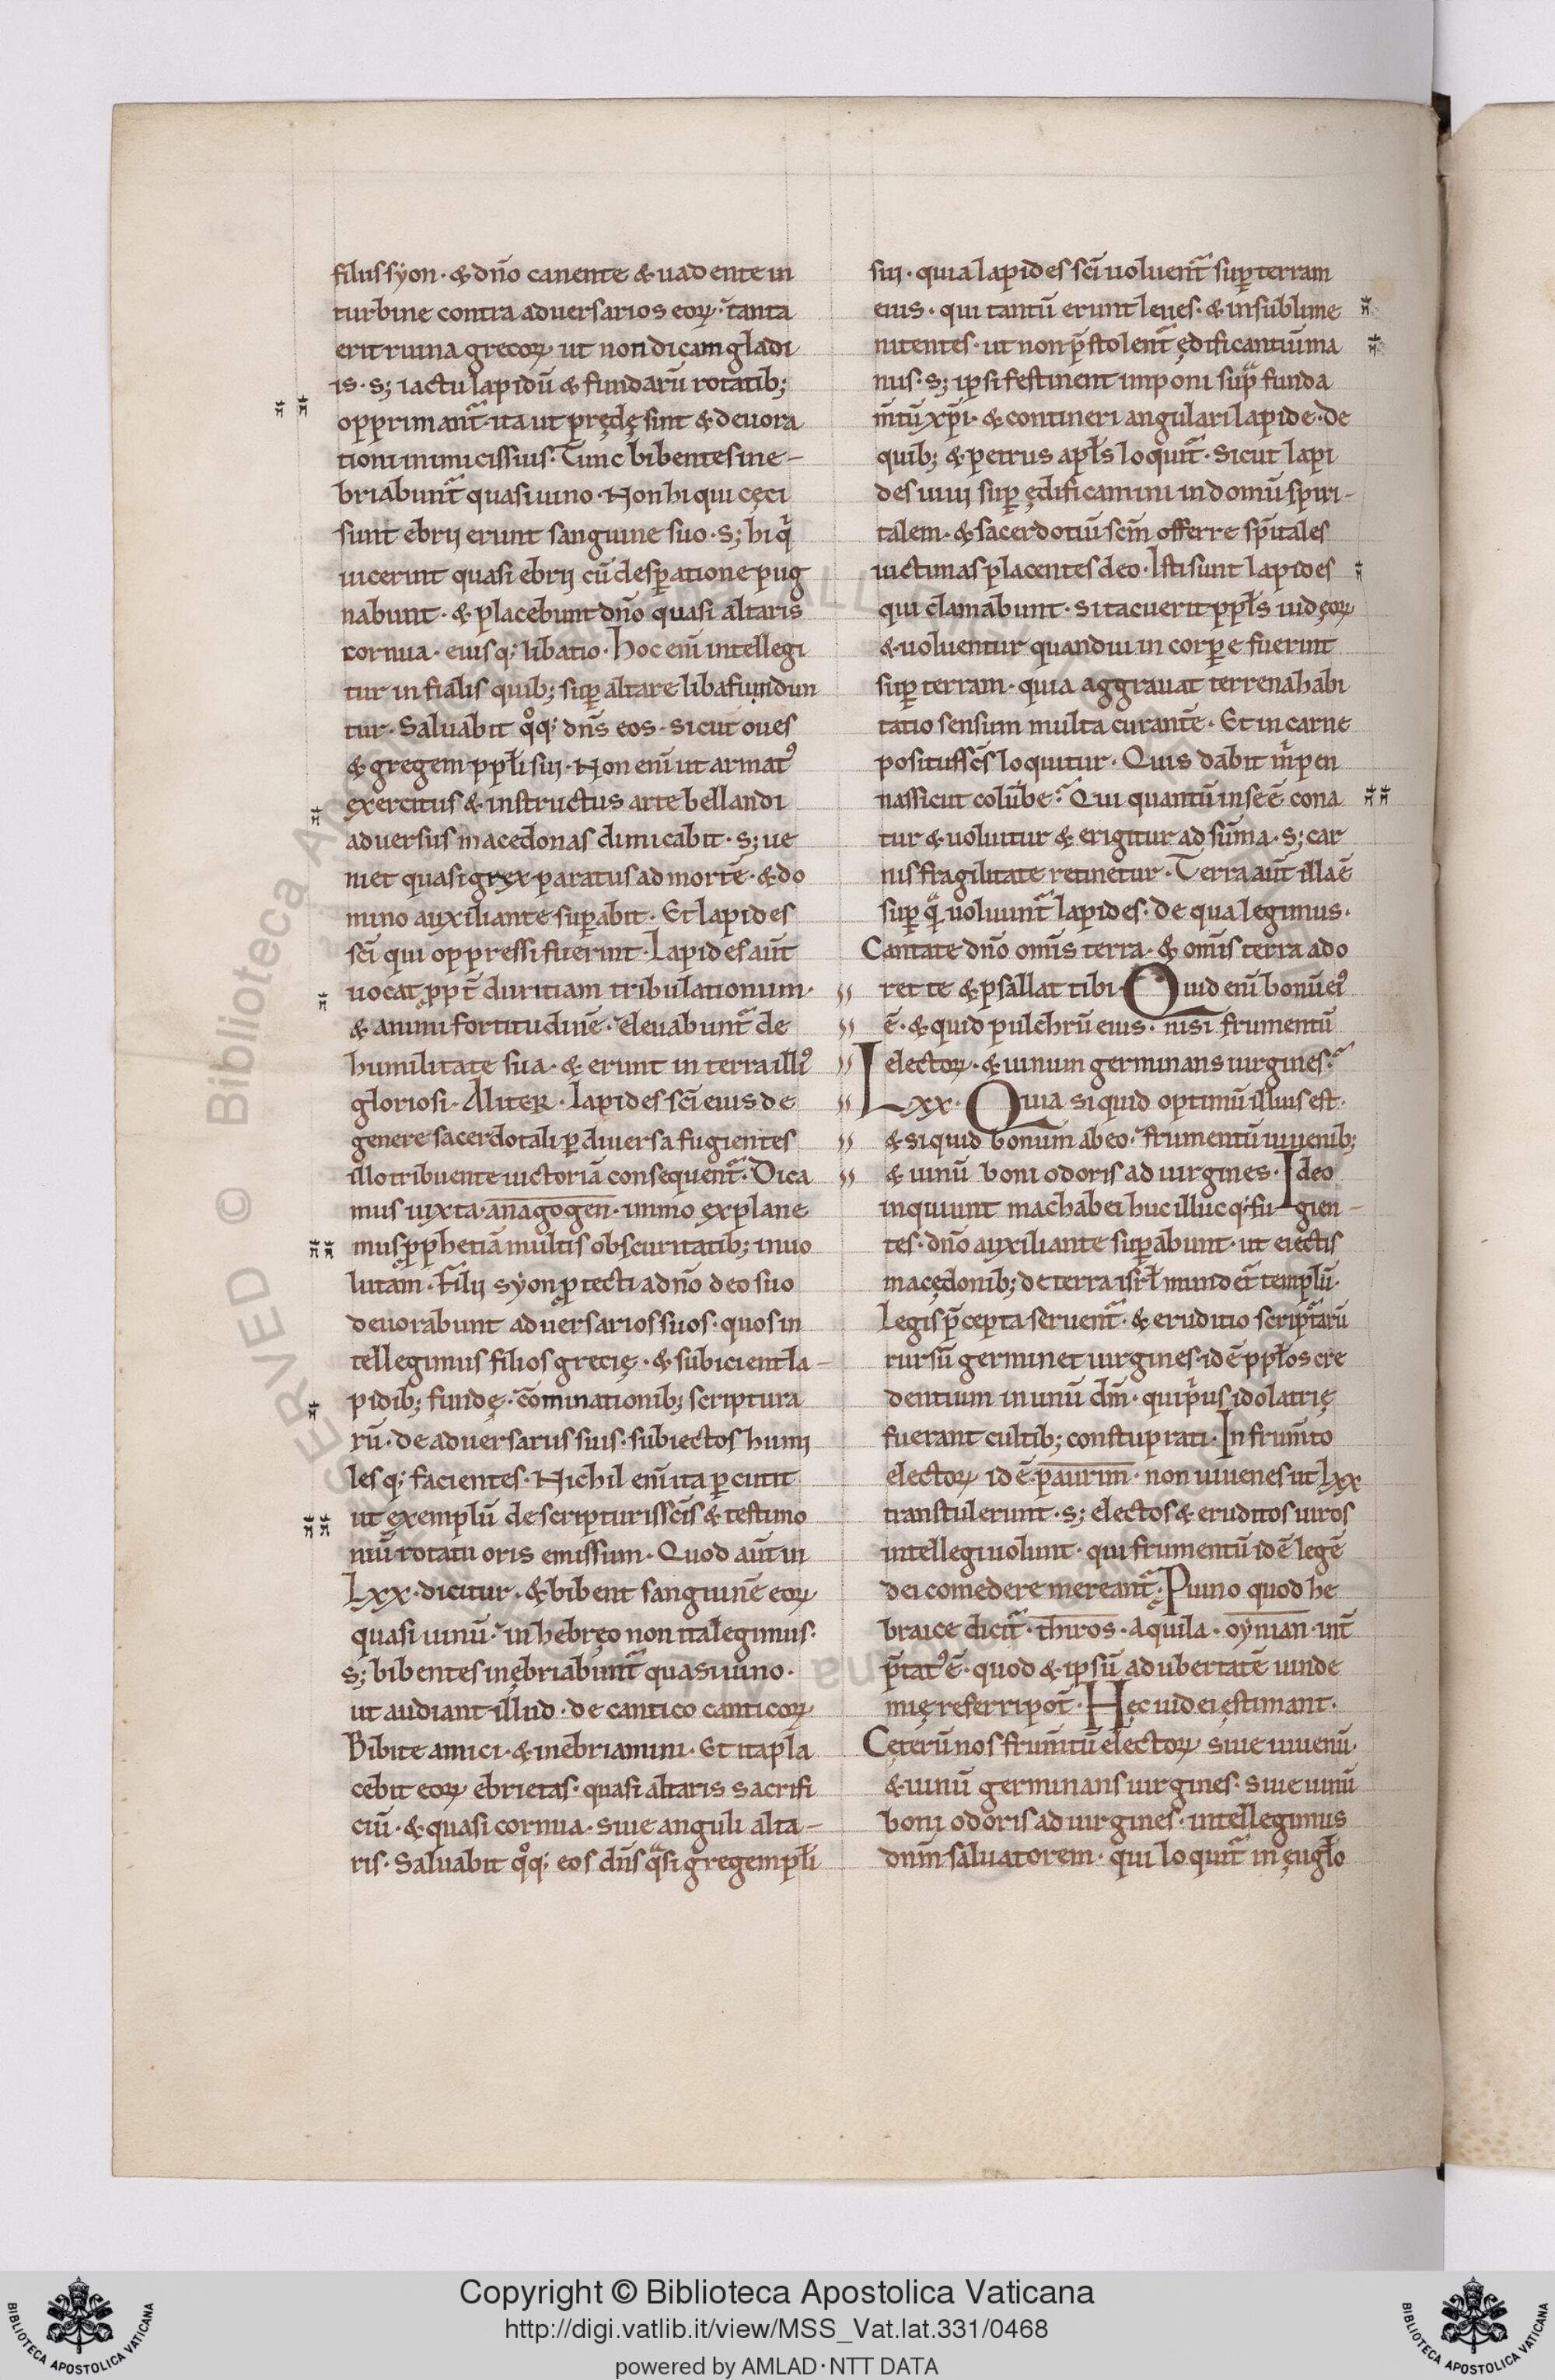 filiis syon · & dn̄o canente & uadente in
turbine contra aduersarios eoꝝ · tanta
erit ruina grecoꝝ · ut non dicam gladi
is · s; iactu lapidū & fundarū rotatib;
opprimant᷑ · ita ut prędę sint & deuora
tioni inimicis suis · Tunc bibentes ine-
briabunt᷑ quasi uino · Non hi qui cęci
sunt ebrij erunt sanguine suo · s; hi qͥ
uicerint quasi ebrij cū desꝑatione pug
nabunt · & placebunt dn̄o quasi altaris
cornua · eiusq; libatio · Hoc enī intellegi
tur in fialis quib; suꝑ altare liba fundun
tur · Saluabit qͦq; dn̄s eos · sicut oues
& gregem ppłi sui · Non enī ut armatꝰ
exercitus & instructus arte bellandi
aduersus macedonas dimicabit · s; ue
niet quasi grex paratus ad mortē · & do
mino auxiliante suꝑabit · Et lapides
sc̄i qui oppressi fuerint · Lapides aūt
uocat ꝓpt̄ duritiam tribulationum ·
& animi fortitudinē · eleuabunt᷑ de
humilitate sua · & erunt in terra illiꝰ
gloriosi · Aliter · Lapides sc̄i eius de
genere sacerdotali ꝑ diuersa fugientes
illo tribuente uictoriā consequent᷑ · Dica
mus iuxta · anagogen · immo explane
mus ꝓphetiā multis obscuritatib; inuo
lutam · Filij syon ꝓtecti a dn̄o deo suo
deuorabunt aduersarios suos · quos in
tellegimus filios grecię · & subicient la-
pidib; fundę · cōminationib; scriptura
rū · de aduersariis suis · subiectos humi
lesq; facientes · Nichil enī ita ꝑcutit
ut exemplū de scripturis sc̄is & testimo
niū rotatu oris emissum · Quod aūt in
Lxx · dicitur · & bibent sanguinē eoꝝ
quasi uinū · in hebręo non ita legimus ·
s; bibentes inębriabunt᷑ quasi uino ·
ut audiant illud · de cantico canticoꝝ
Bibite amici · & inebriamini · Et ita pla
cebit eoꝝ ebrietas · quasi altaris sacrifi
ciū · & quasi cornua · siue anguli alta-
ris · Saluabit qͦq; eos dn̄s qͣsi gregem płi
sui · quia lapides sc̄i uoluent᷑ suꝑ terram
eius · qui tantū erunt leues · & in sublime
nitentes · ut non p̄stolent᷑ ędificantiū ma
nus · s; ipsi festinent imponi supͣ funda
m̄tū xp̄i · & contineri angulari lapide · de
quib; & petrus apłs loquit᷑ · Sicut lapi
des uiuj suꝑ ędificamini in domū spiri-
talem · & sacerdotiū sc̄m offerre sp̄itales
uictimas placentes deo · Isti sunt lapides
qui clamabunt · si tacuerit ppłs iudęoꝝ
& uoluentur quandiu in corꝑe fuerint
suꝑ terram · quia aggrauat terrena habi
tatio sensum multa curantē · Et in carne
positus sc̄s loquitur · Quis dabit m̍ pen
nas sicut colūbę · Qui quantū in se ē cona
tur & uoluitur & erigitur ad sūma · s; car
nis fragilitate retinetur · Terra aūt illa ē
suꝑ qͣ uoluunt᷑ lapides · de qua legimus ·
Cantate dn̄o om̄is terra · & om̄is terra ado
ret te & psallat tibi · Quid enī bonū eiꝰ
ē · & quid pulchrū eius · nisi frumentū
electoꝝ · & uinum germinans uirgines ·
Lxx · Quia siquid optimū illius est ·
& siquid bonum ab eo · frumentū iuuenib;
& uinū boni odoris ad uirgines · Ideo
inquiunt machabei huc illucq; fu-gien-
tes · dn̄o auxiliante suꝑabunt · ut eiectis
macędonib; de terra isrł mundet᷑ templū ·
Legis p̄cepta seruent᷑ · & eruditio scripturarū
rursū germinet uirgines · id ē ppłos cre
dentium in unū dm̄ · qui pͥus idolatrię
fuerant cultib; constuprati · In frum̄to
electoꝝ id ē · paurim · non iuuenes ut Lxx
transtulerunt · s; electos & eruditos uiros
intellegi uolunt · qui frumentū id ē legē
dei comedere mereant᷑ · P uino quod he
braice dicit᷑ · thiros · Aquila · oynian · int̄
p̄tatꝰ ē · quod & ipsū ad ubertatē uinde
mię referri pot̄ · Hęc iudei ęstimant ·
Cęterū nos frum̄tū electoꝝ siue iuuenū ·
& uinū germinans uirgines · siue uinū
boni odoris ad uirgines · intellegimus
dnm̄ saluatorem · qui loquit᷑ in ęugło
Copyright © Biblioteca Apostolica Vaticana
http://digi.vatlib.it/view/MSS_Vat.lat.331/0468
powered by AMLAD·NTT DATA
BIBLIOTECA APOSTOLICA VATICANA
BIBLIOTECA APOSTOLICA VATICANA